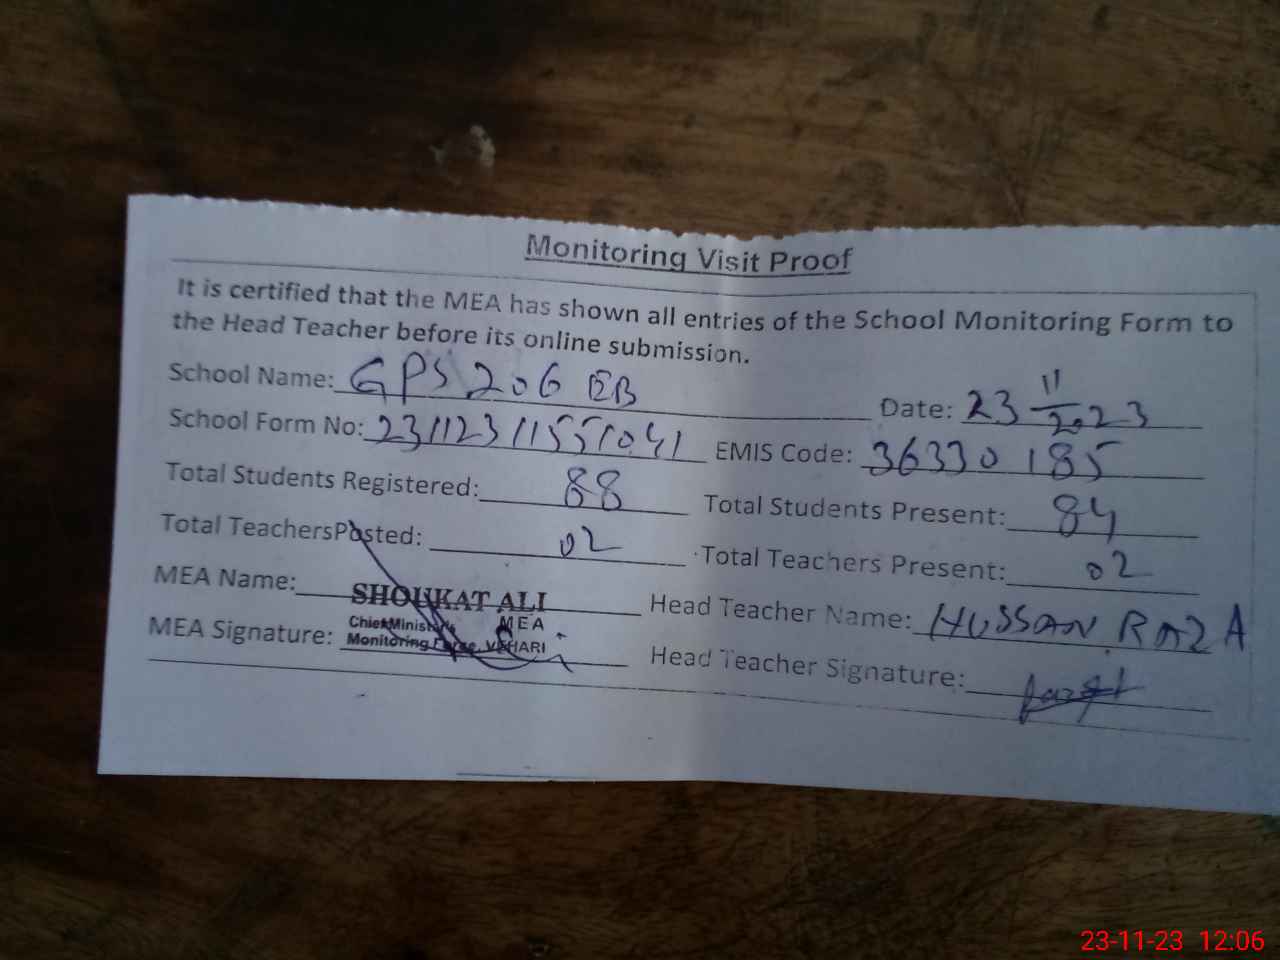 Monitoring Visit Proof
It is certified that the MEA has shown all entries of the School Monitoring Form to
the Head Teacher before its online submission.
School Name: GPS 206 EB Date: 23 11/2023
School Form No: 23112311551041 EMIS Code: 36330185
Total Students Registered: 88 Total Students Present: 84
Total TeachersPosted: 02 Total Teachers Present: 02
MEA Name: SHOUKAT ALI Head Teacher Name: HUSSAN RAZA
MEA
Chief Minister's
MEA Signature: Monitoring Force, VEHARI Head Teacher Signature:
23-11-23 12:06